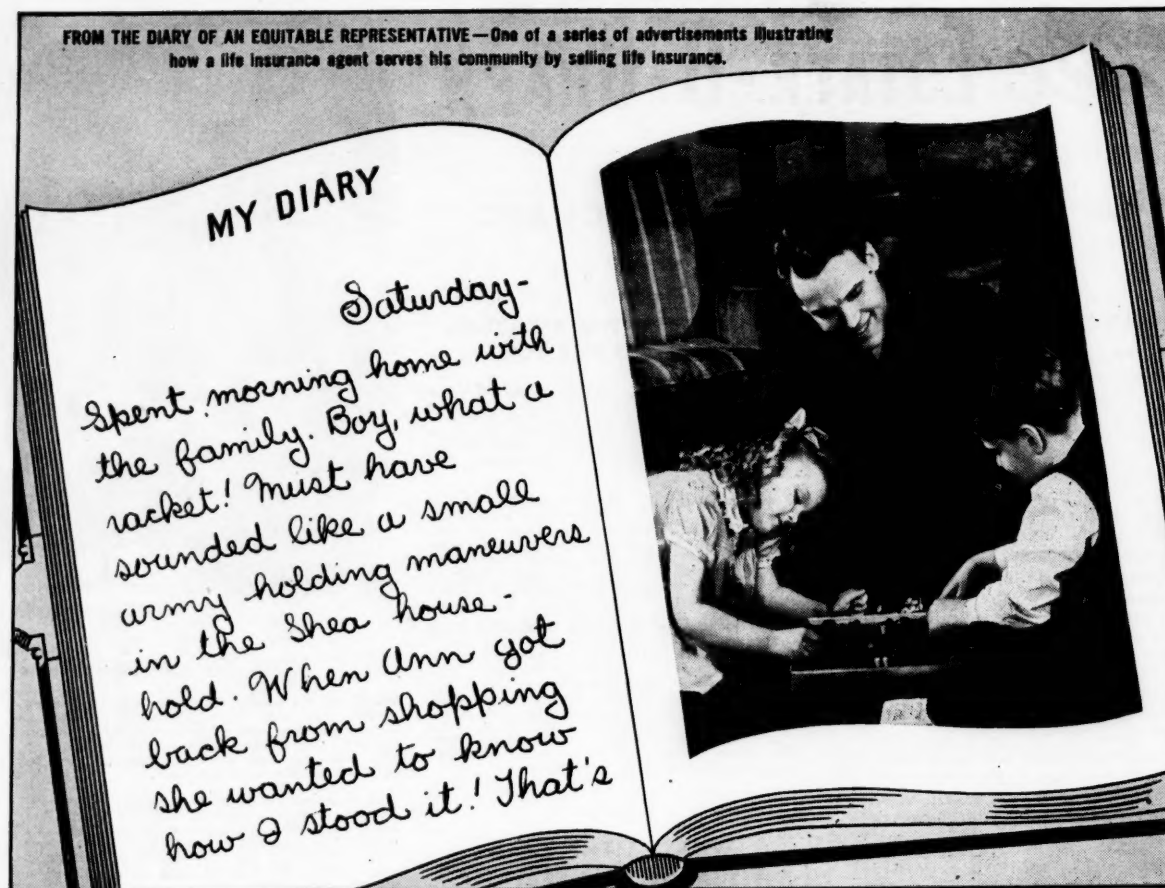 FROM THE DIARY OF AN EQUITABLE REPRESENTATIVE—One of a series of advertisements illustrating
how a life insurance agent serves his community by selling life insurance.
MY DIARY
Saturday-
Spent morning home with
the family. Boy, what a
racket! Must have
sounded like a small
army holding maneuvers
in the Shea house-
hold. When Ann got
back from shopping
she wanted to know
how I stood it! That's